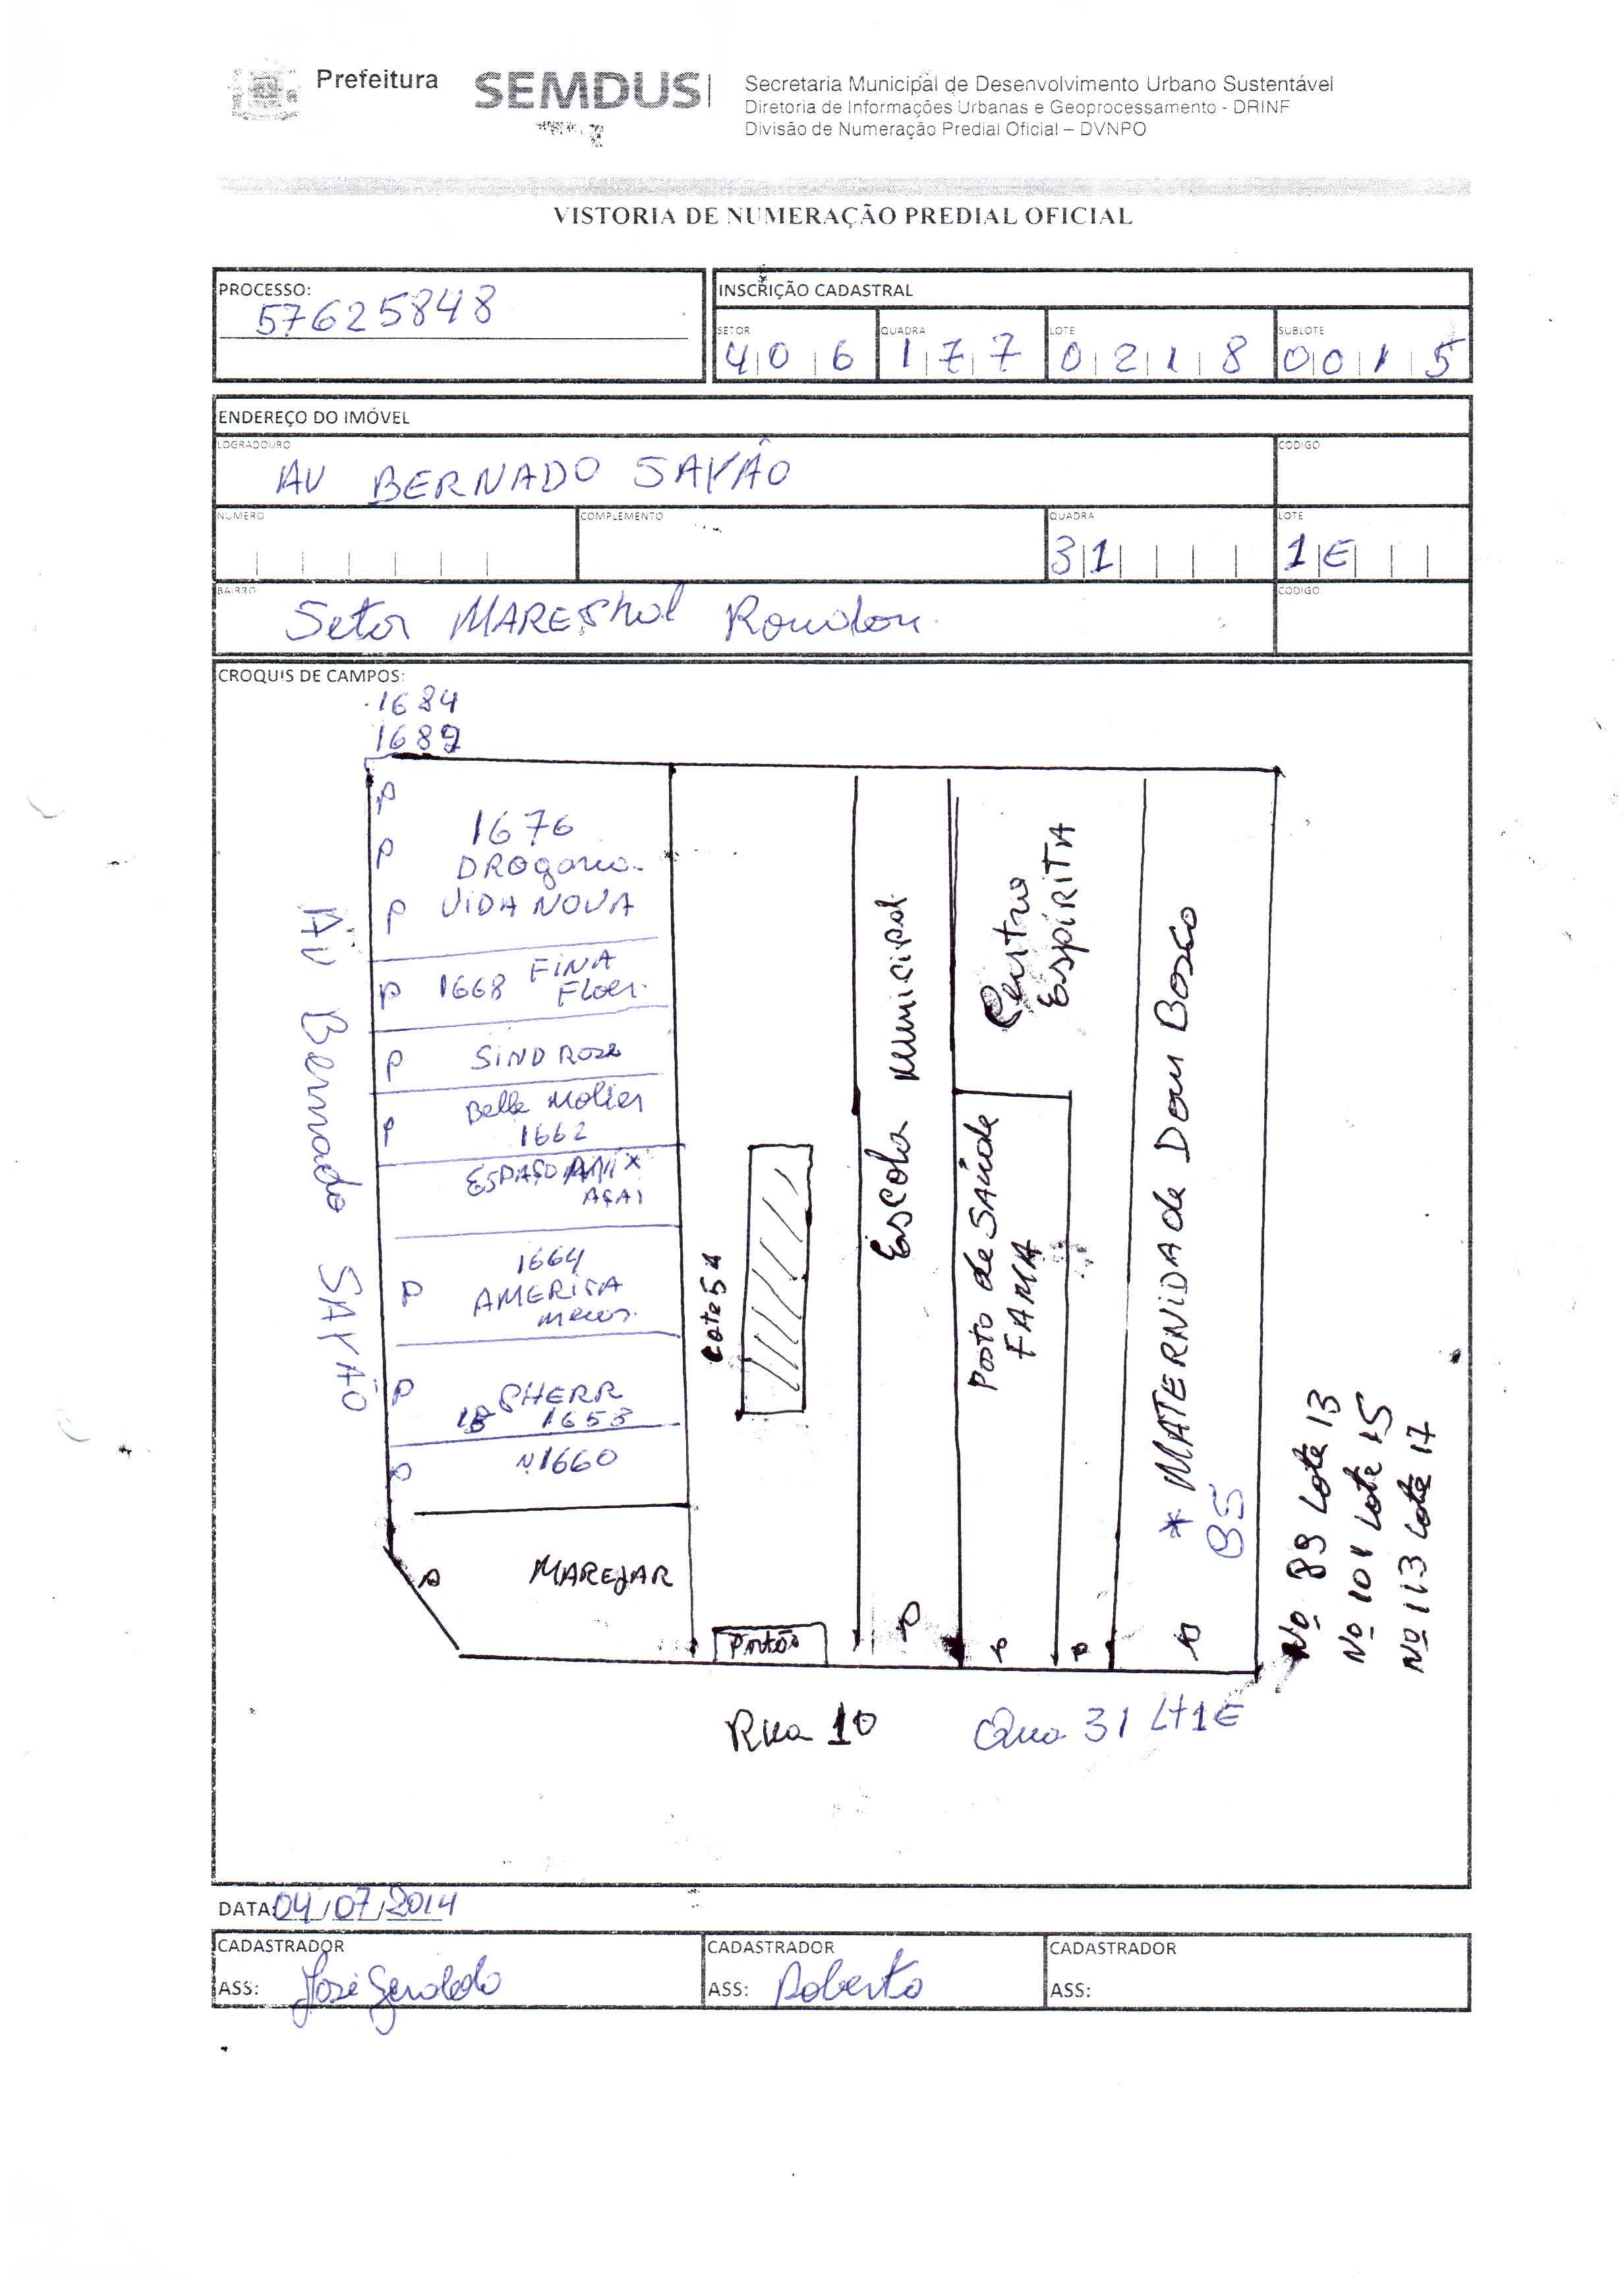 Prefeitura
SEMDUS
Secretaria Municipal de Desenvolvimento Urbano Sustentável
Diretoria de Informações Urbanas e Geoprocessamento - DRINF
Divisão de Numeração Predial Oficial – DVNPO
VISTORIA DE NUMERAÇÃO PREDIAL OFICIAL
PROCESSO:
57625848
INSCRIÇÃO CADASTRAL
SETOR QUADRA LOTE SUBLOTE
406 177 0218 0015
ENDEREÇO DO IMÓVEL
LOGRADOURO CODIGO
AV BERNADO SAYÃO
NUMERO COMPLEMENTO QUADRA LOTE
31 1E
BAIRRO CODIGO
Setor MAREShal Rondon
CROQUIS DE CAMPOS:
1684
1689
P
1676
P DROgaria
P VIDA NOVA
P 1668 FINA
Flor
P SIND
Belle Molier
P 1662
ESPAÇO MIX
AÇAI
1664
P AMERICA
P PHERR
1653
P N 1660
P MAREJAR
AV Bernado SAYÃO
Lote 5
Escola Municipal
Centro
ESPÍRITA
Posto de SAúde
FAMA
* MATERNIDAde Dom Bosco
85
Nº 89 Lote 13
Nº 101 Lote 15
Nº 113 Lote 17
Portão P P P P
Rua 10 Qua 31 Lt1E
DATA: 04/07/2014
CADASTRADOR CADASTRADOR CADASTRADOR
ASS: José Geraldo ASS: Roberto ASS: